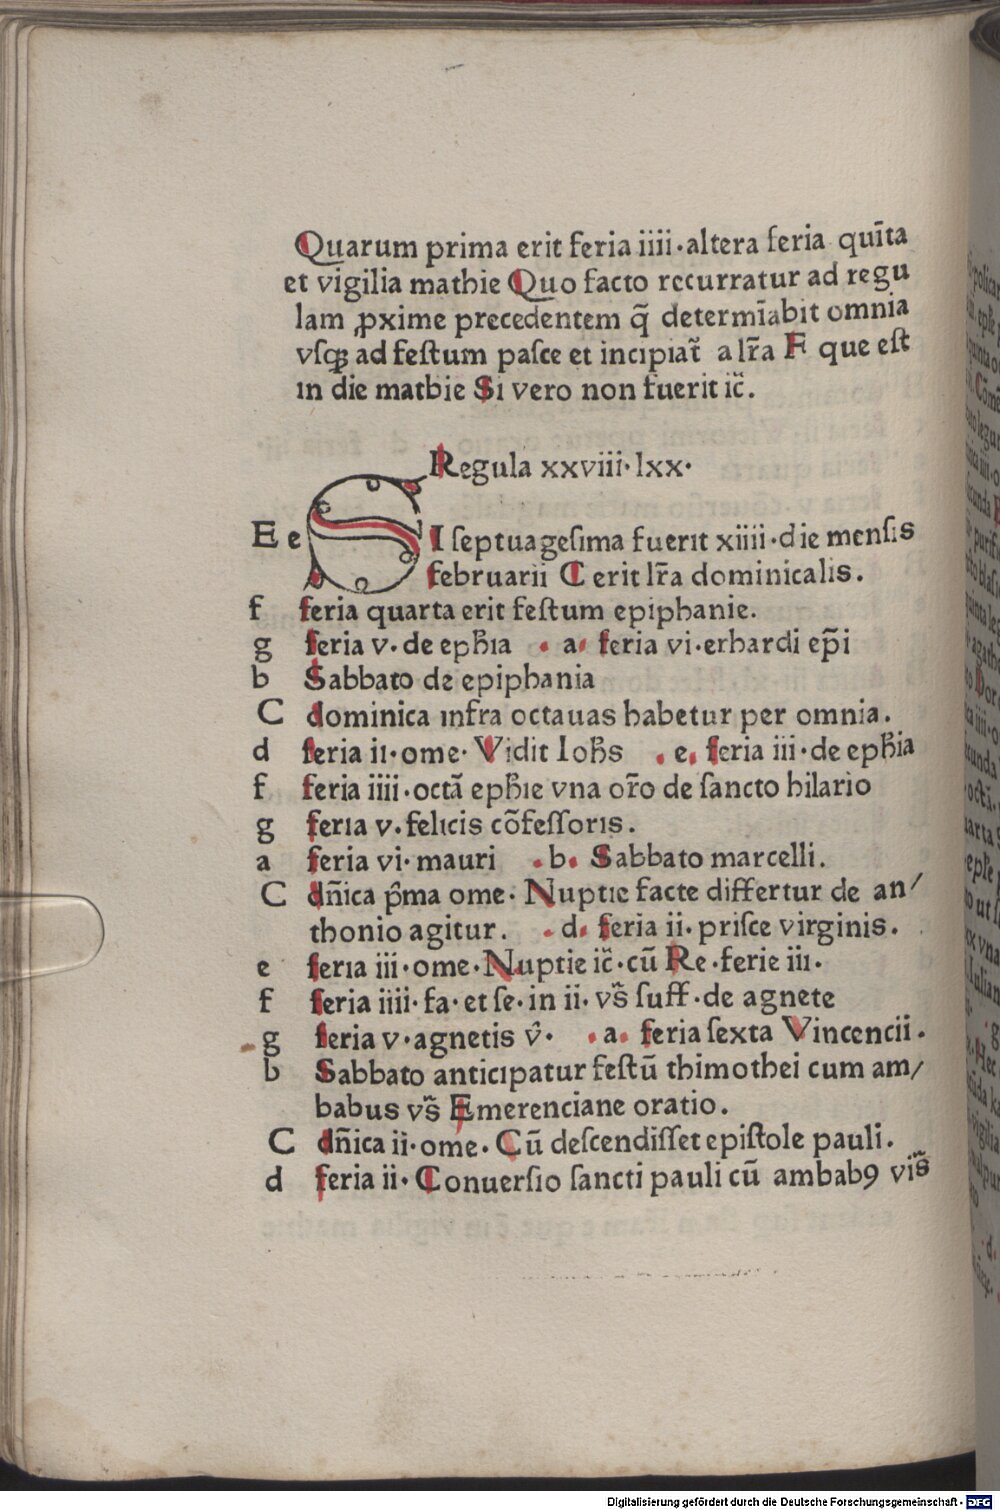 Quarum prima erit feria iiii·altera feria quīta
et vigilia mathie Quo facto recurratur ad regu
lam ꝓxime precedentem q̄ determīabit omnia
vſqꝫ ad feſtum paſce et incipiat᷑ a lr̄a F que eſt
in die mathie Si vero non fuerit ic̄.
Regula xxviii·lxx·
E e SI ſeptuageſima fuerit xiiii·die menſis
februarii C erit lr̄a dominicalis.
f feria quarta erit feſtum epiphanie.
g feria v·de eph̄ia ·a· feria vi·erhardi ep̄i
b Sabbato de epiphania
C dominica infra octauas habetur per omnia.
d feria ii·ome·Vidit Ioh̄s ·e· feria iii·de eph̄ia
f feria iiii·octā eph̄ie vna or̄o de ſancto hilario
g feria v·felicis cōfeſſoris.
a feria vi·mauri ·b· Sabbato marcelli.
C dn̄ica p̄ma ome·Nuptie facte differtur de an/
thonio agitur. ·d· feria ii·priſce virginis.
e feria iii·ome·Nuptie ic̄·cū Re·ferie iii·
f feria iiii·fa·et ſe·in ii·vs̄ ſuff·de agnete
g feria v·agnetis v̄· ·a· feria ſexta Vincencii·
b Sabbato anticipatur feſtū thimothei cum am/
babus vs̄ Emerenciane oratio.
C dn̄ica ii·ome·Cū deſcendiſſet epiſtole pauli.
d feria ii·Conuerſio ſancti pauli cū ambabꝰ vis̄
Digitalisierung gefördert durch die Deutsche Forschungsgemeinschaft - DFG